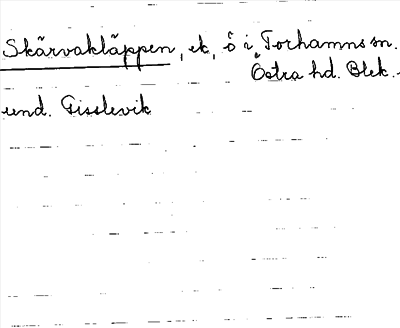 Skärvakläppen, ek, ö i Torhamns sn.
Östra hd. Blek.
und. Gisslevik